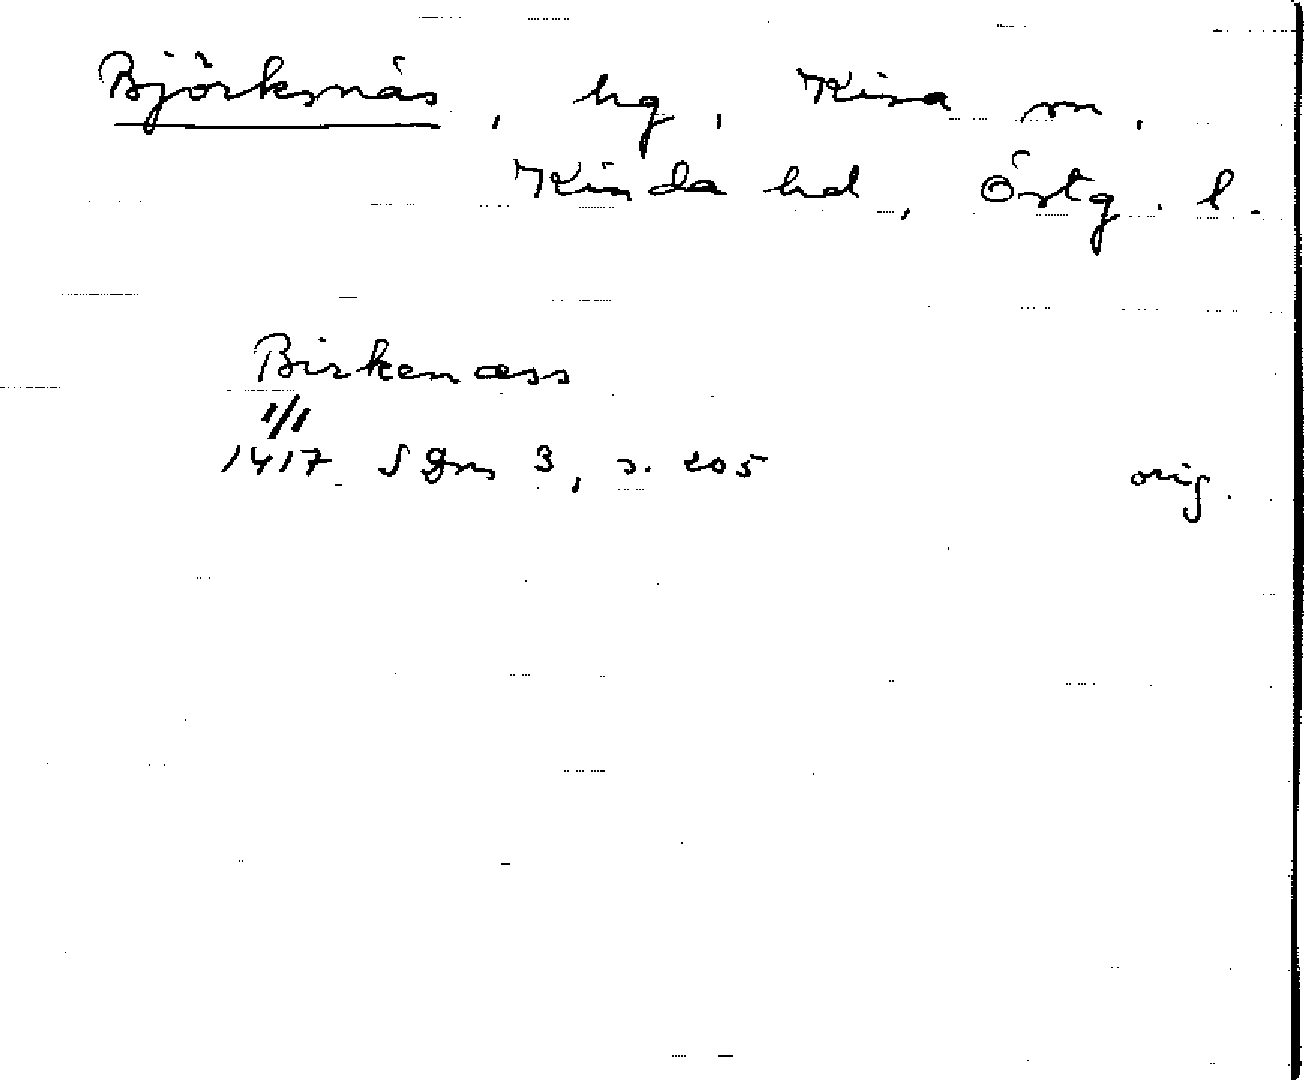 Björksnäs, hg, Kisa sn,
Kinda hd, Östg. l.
Birkenæss
1/1
1417 SDns 3, s. 205 orig.